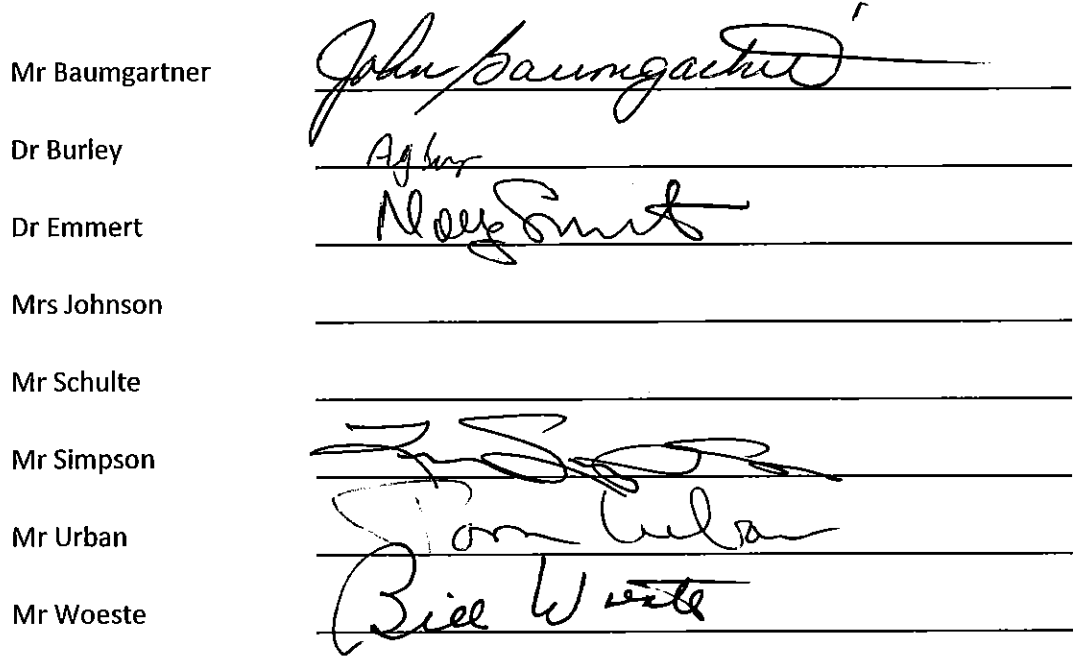 Mr Baumgartner John Baumgartner
Dr Burley
Dr Emmert
Mrs Johnson
Mr Schulte
Mr Simpson
Mr Urban Tom Urban
Mr Woeste Bill Woeste